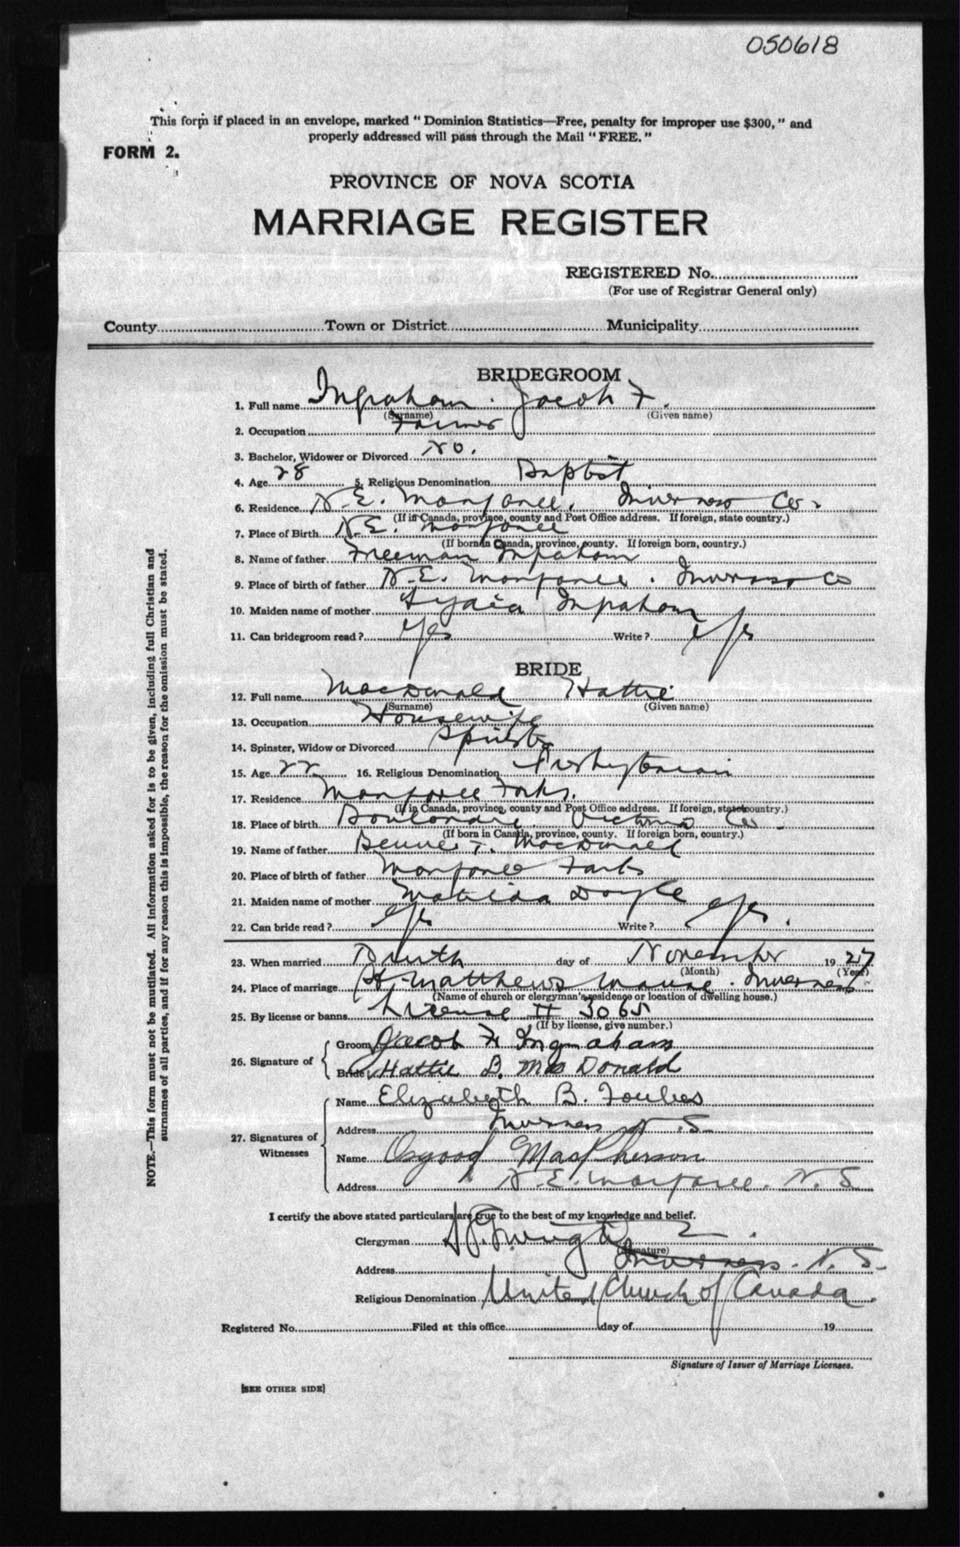 050618
This form if placed in an envelope, marked "Dominion Statistics—Free, penalty for improper use $300," and
properly addressed will pass through the Mail "FREE."
FORM 2.
PROVINCE OF NOVA SCOTIA
MARRIAGE REGISTER
REGISTERED No.
(For use of Registrar General only)
County Town or District Municipality
BRIDEGROOM
1. Full name Ingraham. Jacob F.
(Surname) (Given name)
2. Occupation Farmer
3. Bachelor, Widower or Divorced No.
4. Age 28 5. Religious Denomination Baptist
6. Residence N.E. Margaree, Inverness Co.
(If in Canada, province, county and Post Office address. If foreign, state country.)
7. Place of Birth N.E. Margaree
(If born in Canada, province, county. If foreign born, country.)
8. Name of father Freeman Ingraham
9. Place of birth of father N.E. Margaree. Inverness Co
10. Maiden name of mother Ingraham
11. Can bridegroom read? Yes Write? Yes
BRIDE
12. Full name MacDonald Hattie
(Surname) (Given name)
13. Occupation Housewife
14. Spinster, Widow or Divorced Spinster
15. Age 22 16. Religious Denomination Presbyterian
17. Residence Margaree Forks.
(If in Canada, province, county and Post Office address. If foreign, state country.)
18. Place of birth Boularderie Victoria Co.
(If born in Canada, province, county. If foreign born, country.)
19. Name of father MacDonald
20. Place of birth of father Margaree Forks
21. Maiden name of mother Matilda Doyle
22. Can bride read? Yes Write? Yes.
23. When married Ninth day of November 1927
(Month) (Year)
24. Place of marriage St. Matthews Manse. Inverness
(Name of church or clergyman's residence or location of dwelling house.)
25. By license or banns License # 3065
(If by license, give number.)
26. Signature of { Groom Jacob F Ingraham
Bride Hattie B. McDonald
27. Signatures of Witnesses { Name Elizabeth B. Forbes
Address Inverness N.S.
Name Osgood MacPherson
Address N.E. Margaree. N.S.
I certify the above stated particulars are true to the best of my knowledge and belief.
Clergyman
(Signature)
Address Inverness. N.S.
Religious Denomination United Church of Canada.
Registered No. Filed at this office day of 19
Signature of Issuer of Marriage Licenses.
[SEE OTHER SIDE]
NOTE.—This form must not be mutilated. All information asked for is to be given, including full Christian and
surnames of all parties, and if for any reason this is impossible, the reason for the omission must be stated.